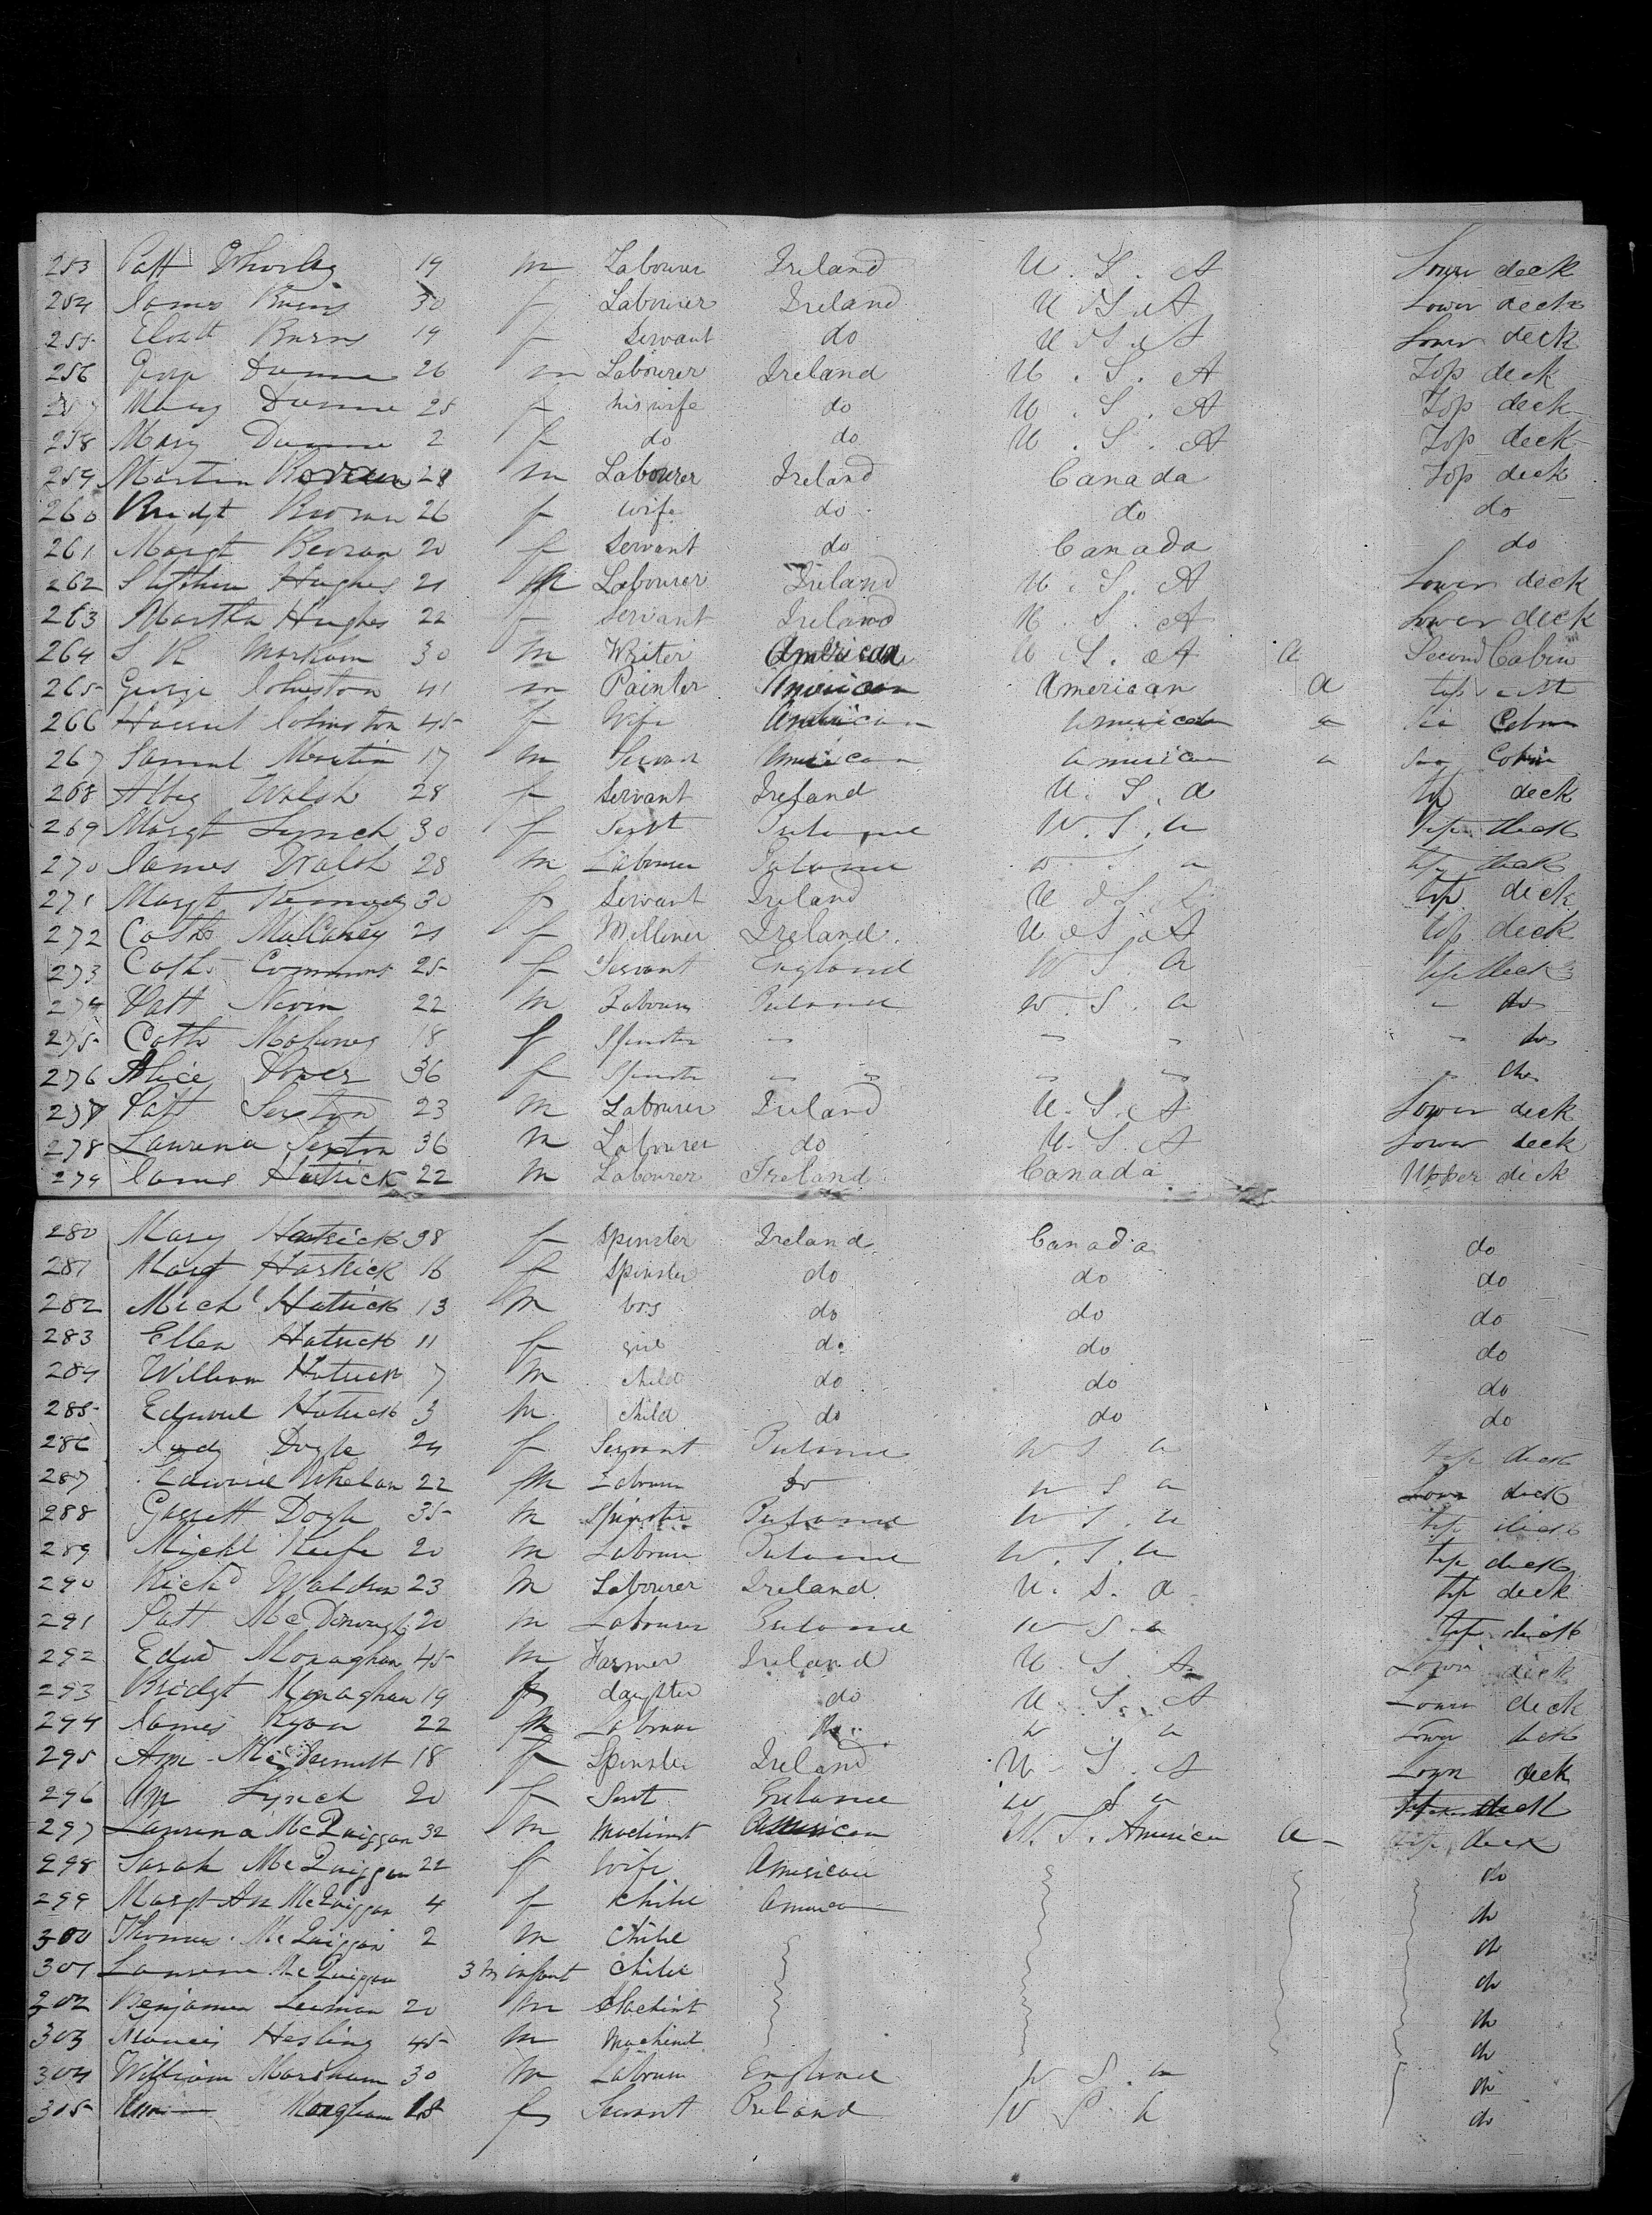 253 Patt 19 m Labourer Ireland U. S. A Lower deck
254 James Burns 30 f Labourer Ireland U. S. A Lower deck
255 Elizath Burns 19 f Servant do U. S. A Lower deck
256 Dunne 26 m Labourer Ireland U. S. A Top deck
257 Mary Dunne 25 f his wife do U. S. A Top deck
258 Mary Dunne 2 f do do U. S. A Top deck
259 Martin 28 m Labourer Ireland Canada Top deck
260 Bridgt 26 f wife do do do
261 Margt 20 f Servant do Canada do
262 Stephen Hughes 21 m Labourer Ireland U. S. A Lower deck
263 Martha Hughes 22 f Servant Ireland U. S. A Lower deck
264 S R Markham 30 m Writer American U. S. A a Second Cabin
265 George Johnston 41 m Painter American American a
266 Johnston 45 f Wife American American a
267 Samuel Martin 17 m American American a
268 Walsh 28 f Servant Ireland U. S. a top deck
269 Margt Lynch 30 f Servt U. S. a top deck
270 James Walsh 28 m Labourer top deck
271 Margt Kennedy 30 f Servant Ireland U. S. top deck
272 Cath 21 f Milliner Ireland. U. S. A top deck
273 Cath 25 f Servant England U S a top deck
274 Patt Nevin 22 m Labourer U. S. a " do
275 Cath Maloney 18 f Spinster " " " " do
276 Alice 36 f Spinster " " " " " do
277 Patt Sexton 23 m Labourer Ireland U. S. A Lower deck
278 Sexton 36 m Labourer do U. S. A Lower deck
279 James Hatrick 22 m Labourer Ireland Canada Upper deck
280 Mary Hatrick 38 f Spinster Ireland Canada do
281 Margt Hatrick 16 f Spinster do do do
282 Michl Hatrick 13 m boy do do do
283 Ellen Hatrick 11 f girl do do do
284 William Hatrick 7 m child do do do
285 Edward Hatrick 3 m child do do do
286 Judy Doyle 24 f Servant U S a top deck
287 Edward Whelan 22 m Labourer do U S a Lower deck
288 Garrett Doyle 35 m Spinster U S. a top deck
289 Michl Keefe 20 m Labourer U. S. a top deck
290 Richd Waldron 23 m Labourer Ireland U. S. a top deck
291 Patt McDonough 20 m Labourer U S a top deck
292 Edwd Monaghan 45 m Farmer Ireland U. S. A Lower deck
293 Bridgt Monaghan 19 f daughter do U. S. A Lower deck
294 James Ryan 22 m Labourer do U a Lower deck
295 Ann McDermott 18 f Spinster Ireland U. S. A Lower deck
296 Ann Lynch 20 f Servt U S a top deck
297 McQuiggan 32 m Machinist American U. S. America a top deck
298 Sarah McQuiggan 22 f Wife American do
299 Margt Ann McQuiggan 4 f Child do
300 Thomas McQuiggan 2 m Child do
301 McQuiggan 3 m infant Child do
302 Benjamin Leeman 20 m Machinist do
303 Francis Hesling 45 m Machinist do
304 William Markham 30 m Labourer England U S. a do
305 f Servant Ireland U S. a do